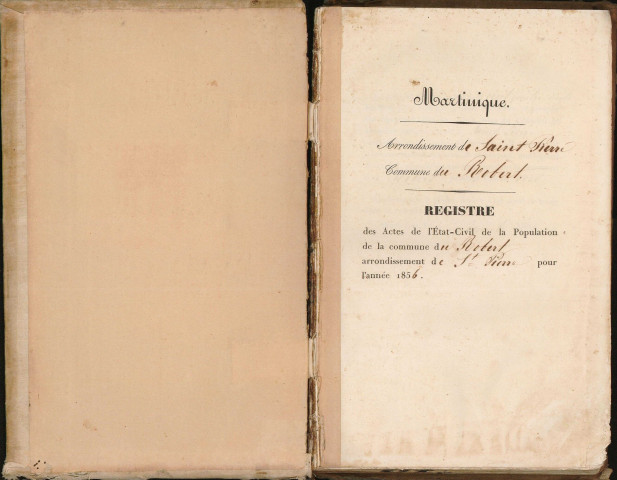 Martinique.
Arrondissement de Saint Pierre
Commune du Robert.
REGISTRE
des Actes de l'État-Civil de la Population
de la commune du Robert
arrondissement de St Pierre pour
l'année 1856.